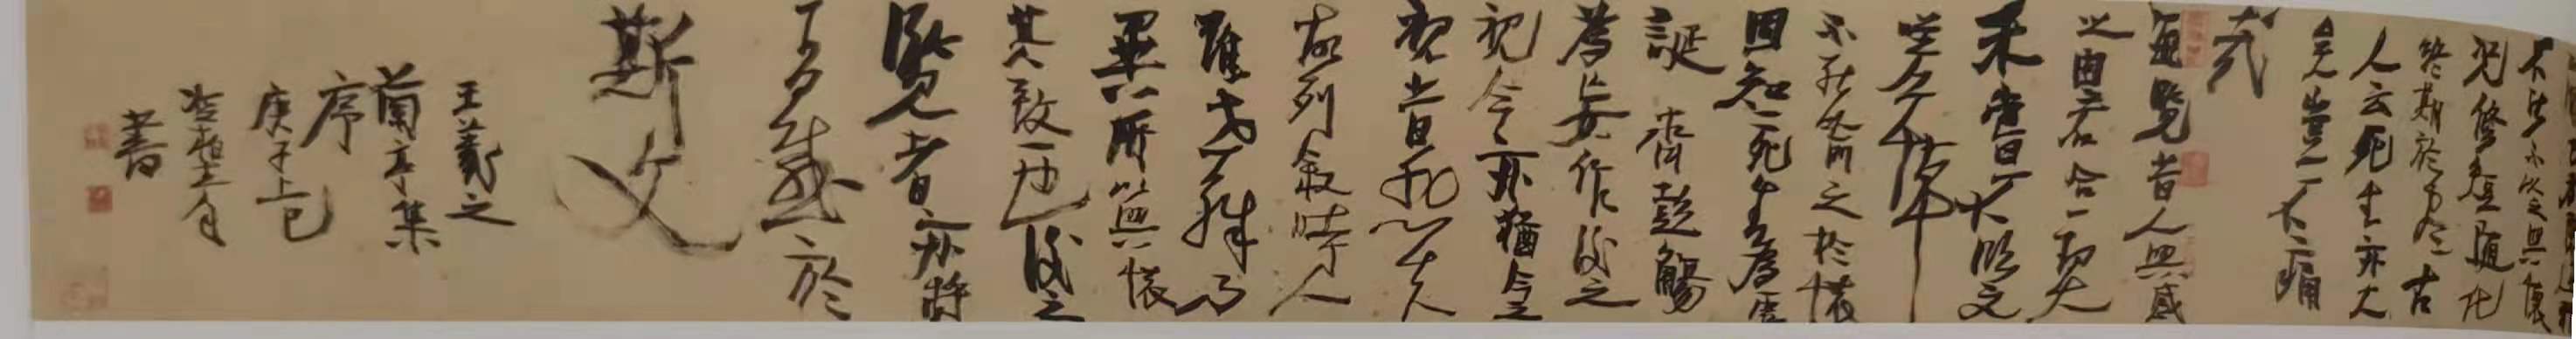 不能不以之興懷
況修短隨化
終期於盡古
人云死生亦大
矣豈不痛
哉
每覽昔人興感
之由若合一契
未嘗不臨文
嗟悼
不能喻之於懷
固知一死生為虛
誕齊彭殤
為妄作後之
視今亦猶今之
視昔悲夫
故列叙時人
雖世殊事
異所以興懷
其致一也後之
覽者亦將
有感於
斯文
王羲之
蘭亭集
序
庚子上巳
書